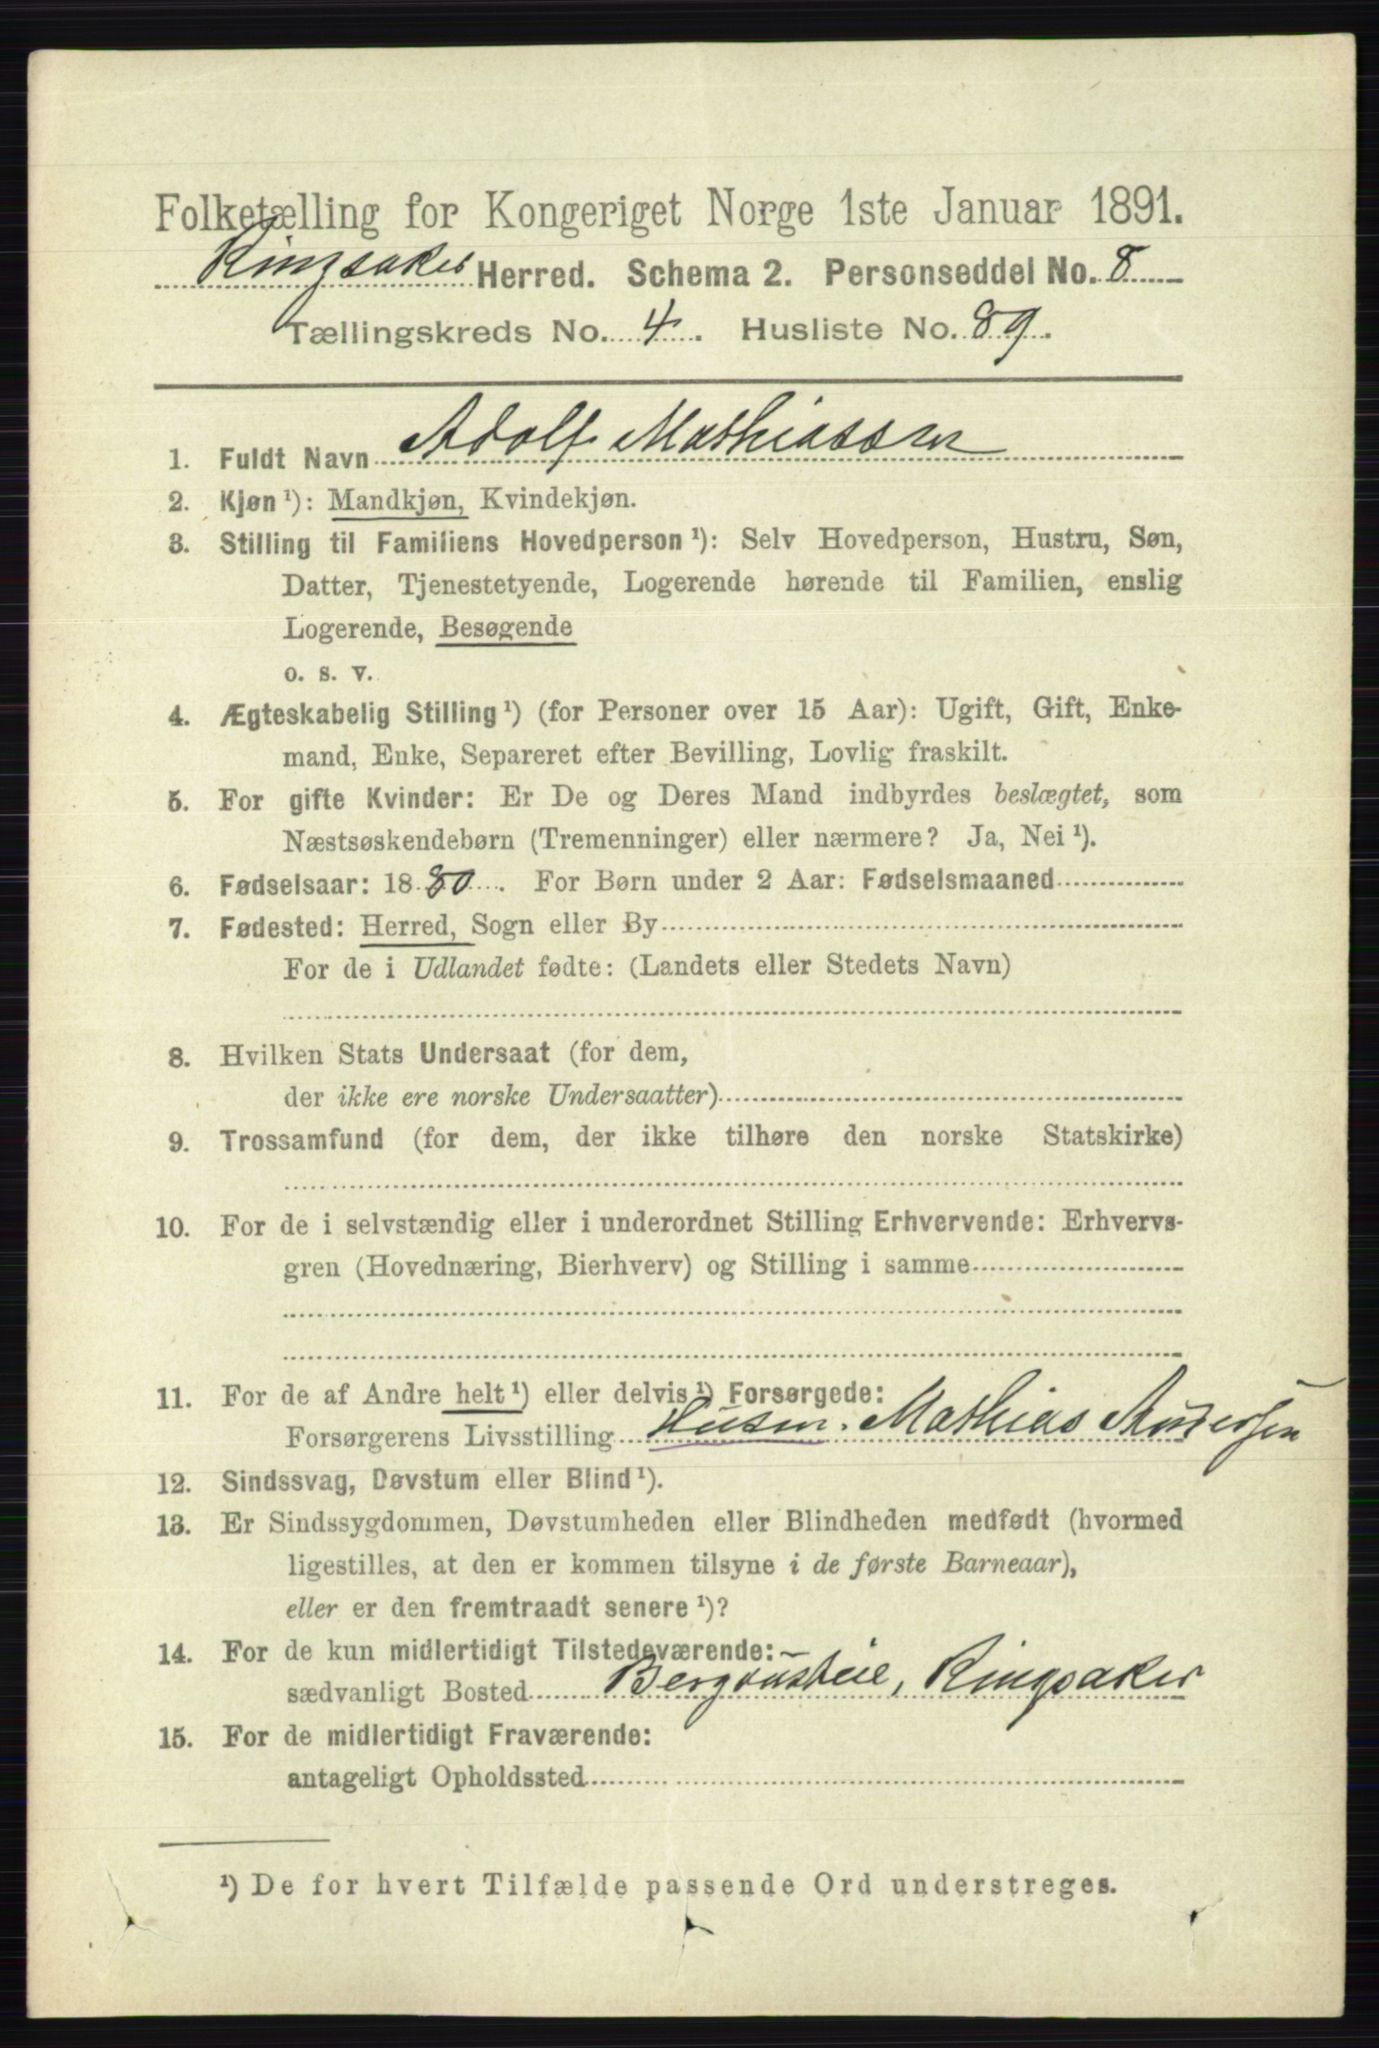 Folketælling for Kongeriget Norge 1ste Januar 1891.
Ringsaker Herred. Schema 2. Personseddel No. 8
Tællingskreds No. 4. Husliste No. 89.
1. Fuldt Navn Adolf Mathiassen
2. Kjøn ¹): Mandkjøn, Kvindekjøn.
3. Stilling til Familiens Hovedperson ¹): Selv Hovedperson, Hustru, Søn,
Datter, Tjenestetyende, Logerende hørende til Familien, enslig
Logerende, Besøgende
o. s. v.
4. Ægteskabelig Stilling ¹) (for Personer over 15 Aar): Ugift, Gift, Enke-
mand, Enke, Separeret efter Bevilling, Lovlig fraskilt.
5. For gifte Kvinder: Er De og Deres Mand indbyrdes beslægtet, som
Næstsøskendebørn (Tremenninger) eller nærmere? Ja, Nei ¹).
6. Fødselsaar: 1880. For Børn under 2 Aar: Fødselsmaaned
7. Fødested: Herred, Sogn eller By
For de i Udlandet fødte: (Landets eller Stedets Navn)
8. Hvilken Stats Undersaat (for dem,
der ikke ere norske Undersaatter)
9. Trossamfund (for dem, der ikke tilhøre den norske Statskirke)
10. For de i selvstændig eller i underordnet Stilling Erhvervende: Erhvervs-
gren (Hovednæring, Bierhverv) og Stilling i samme
11. For de af Andre helt ¹) eller delvis ¹) Forsørgede:
Forsørgerens Livsstilling Husm. Mathias Andersen
12. Sindssvag, Døvstum eller Blind ¹).
13. Er Sindssygdommen, Døvstumheden eller Blindheden medfødt (hvormed
ligestilles, at den er kommen tilsyne i de første Barneaar),
eller er den fremtraadt senere ¹)?
14. For de kun midlertidigt Tilstedeværende:
sædvanligt Bosted Bergrusteie, Ringsaker
15. For de midlertidigt Fraværende:
antageligt Opholdssted
¹) De for hvert Tilfælde passende Ord understreges.